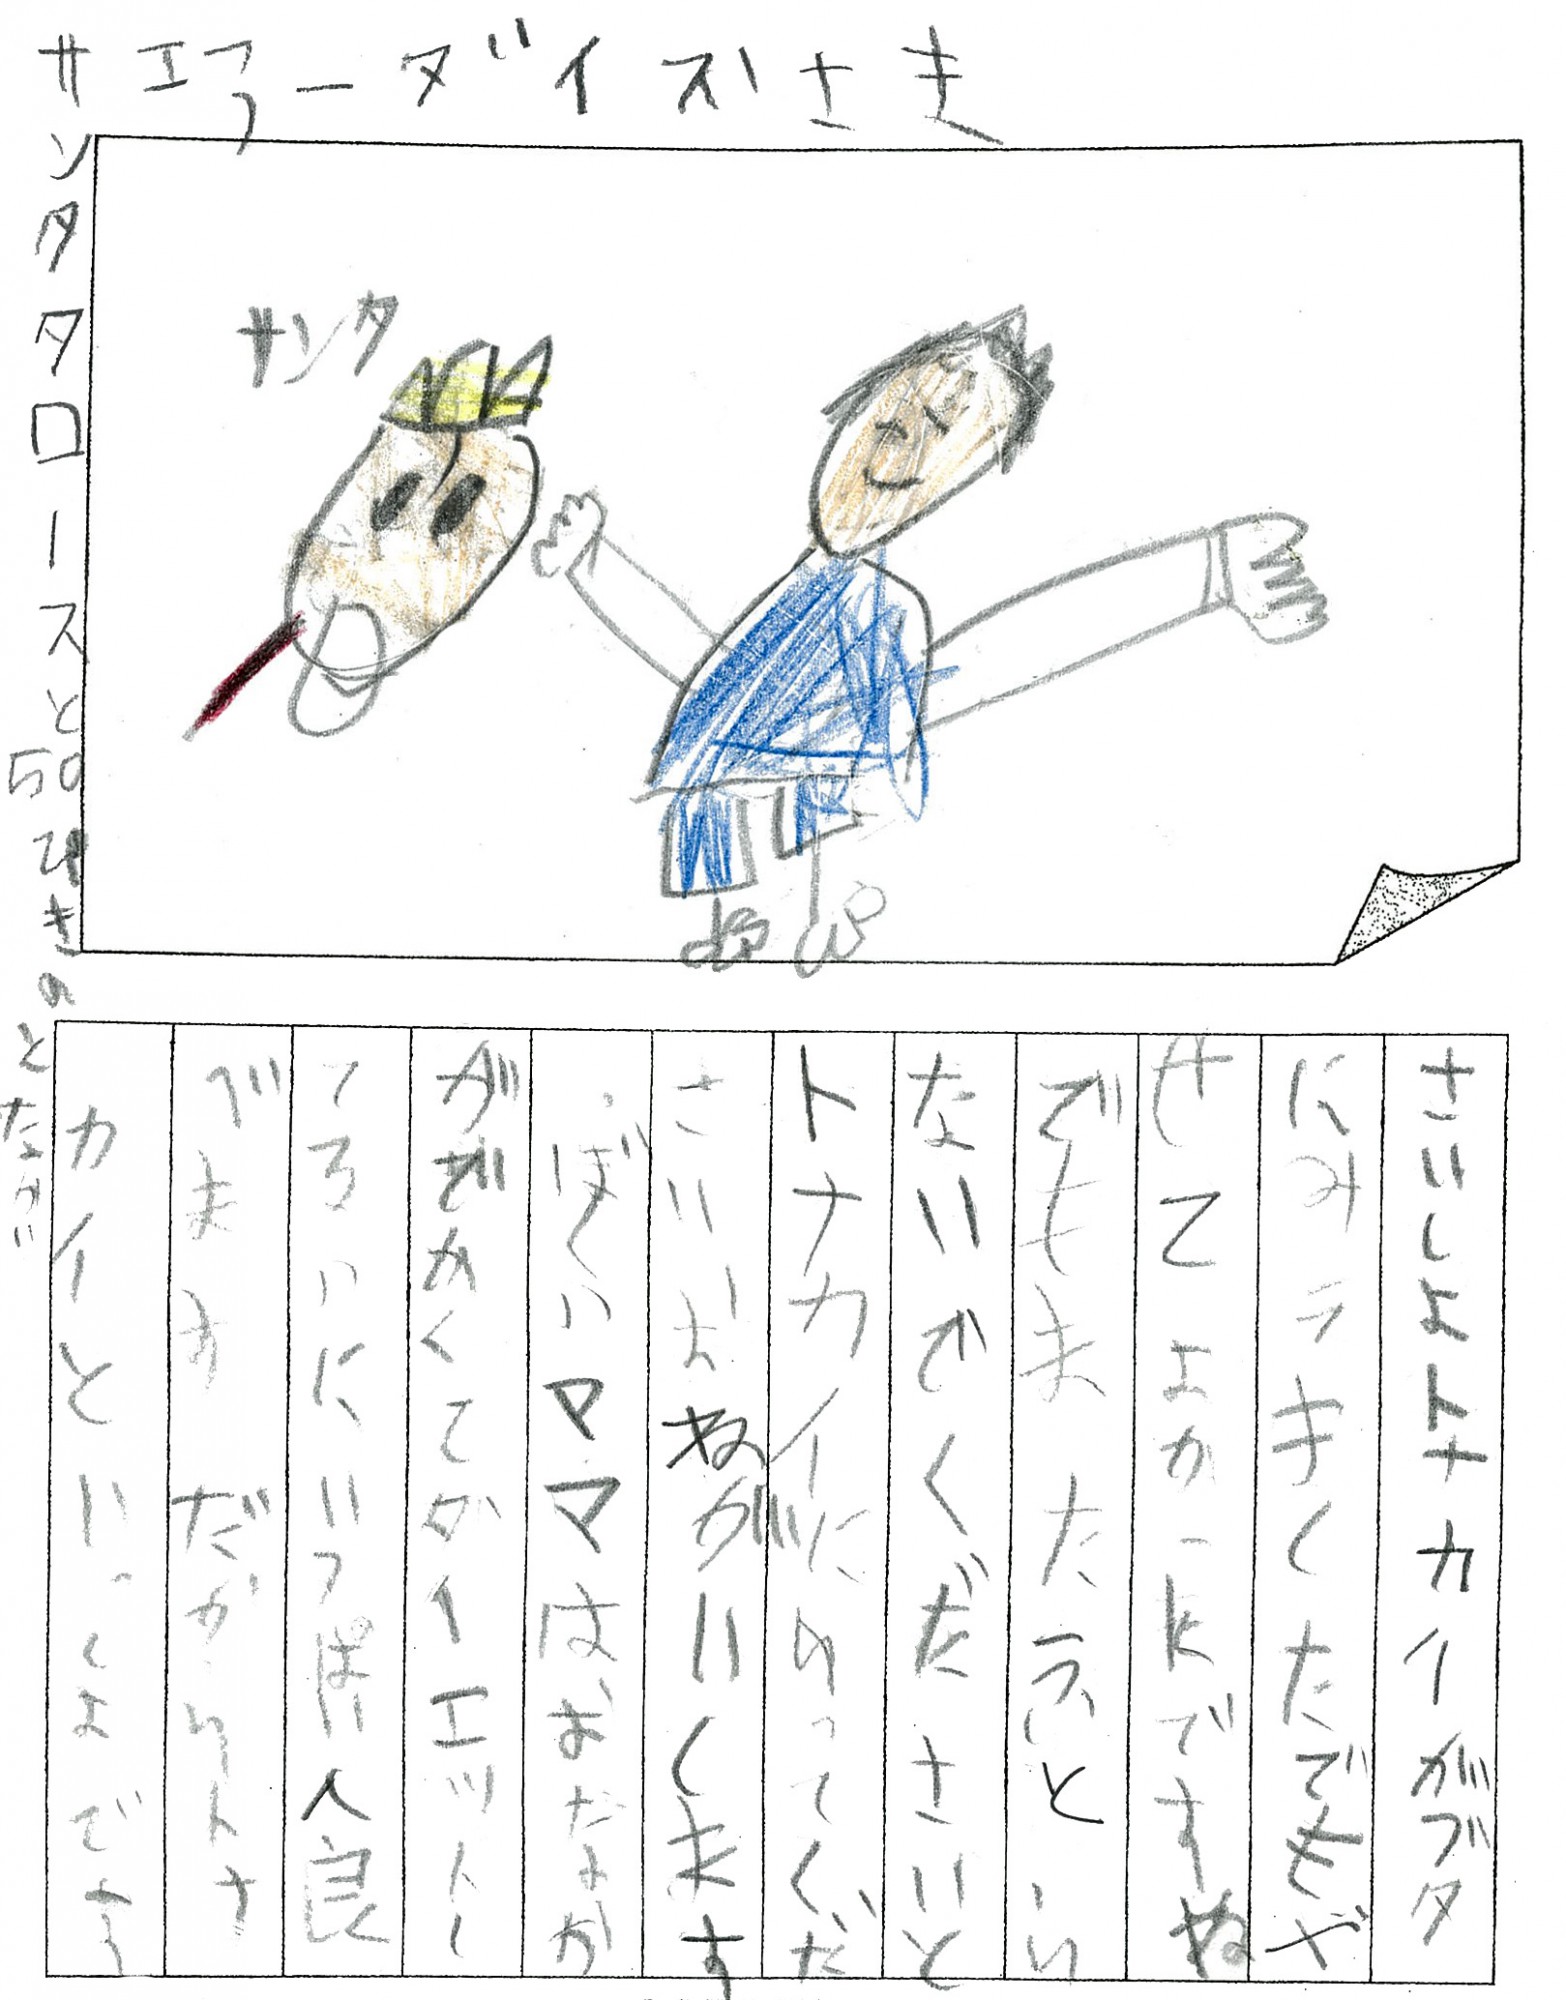 サンタタロースと50ぴきのとなかい
サンタ
さいしよトナカイがブタ
にみラきくたでもや
せてよかったですね
でもまたラいとい
ないでくださいと
トナカイにのってくだ
さいおねがいします
ぼくのママはおなか
がでかくてダイエットし
てるのにいっぱい食
べます だからトナ
カイといっしよです